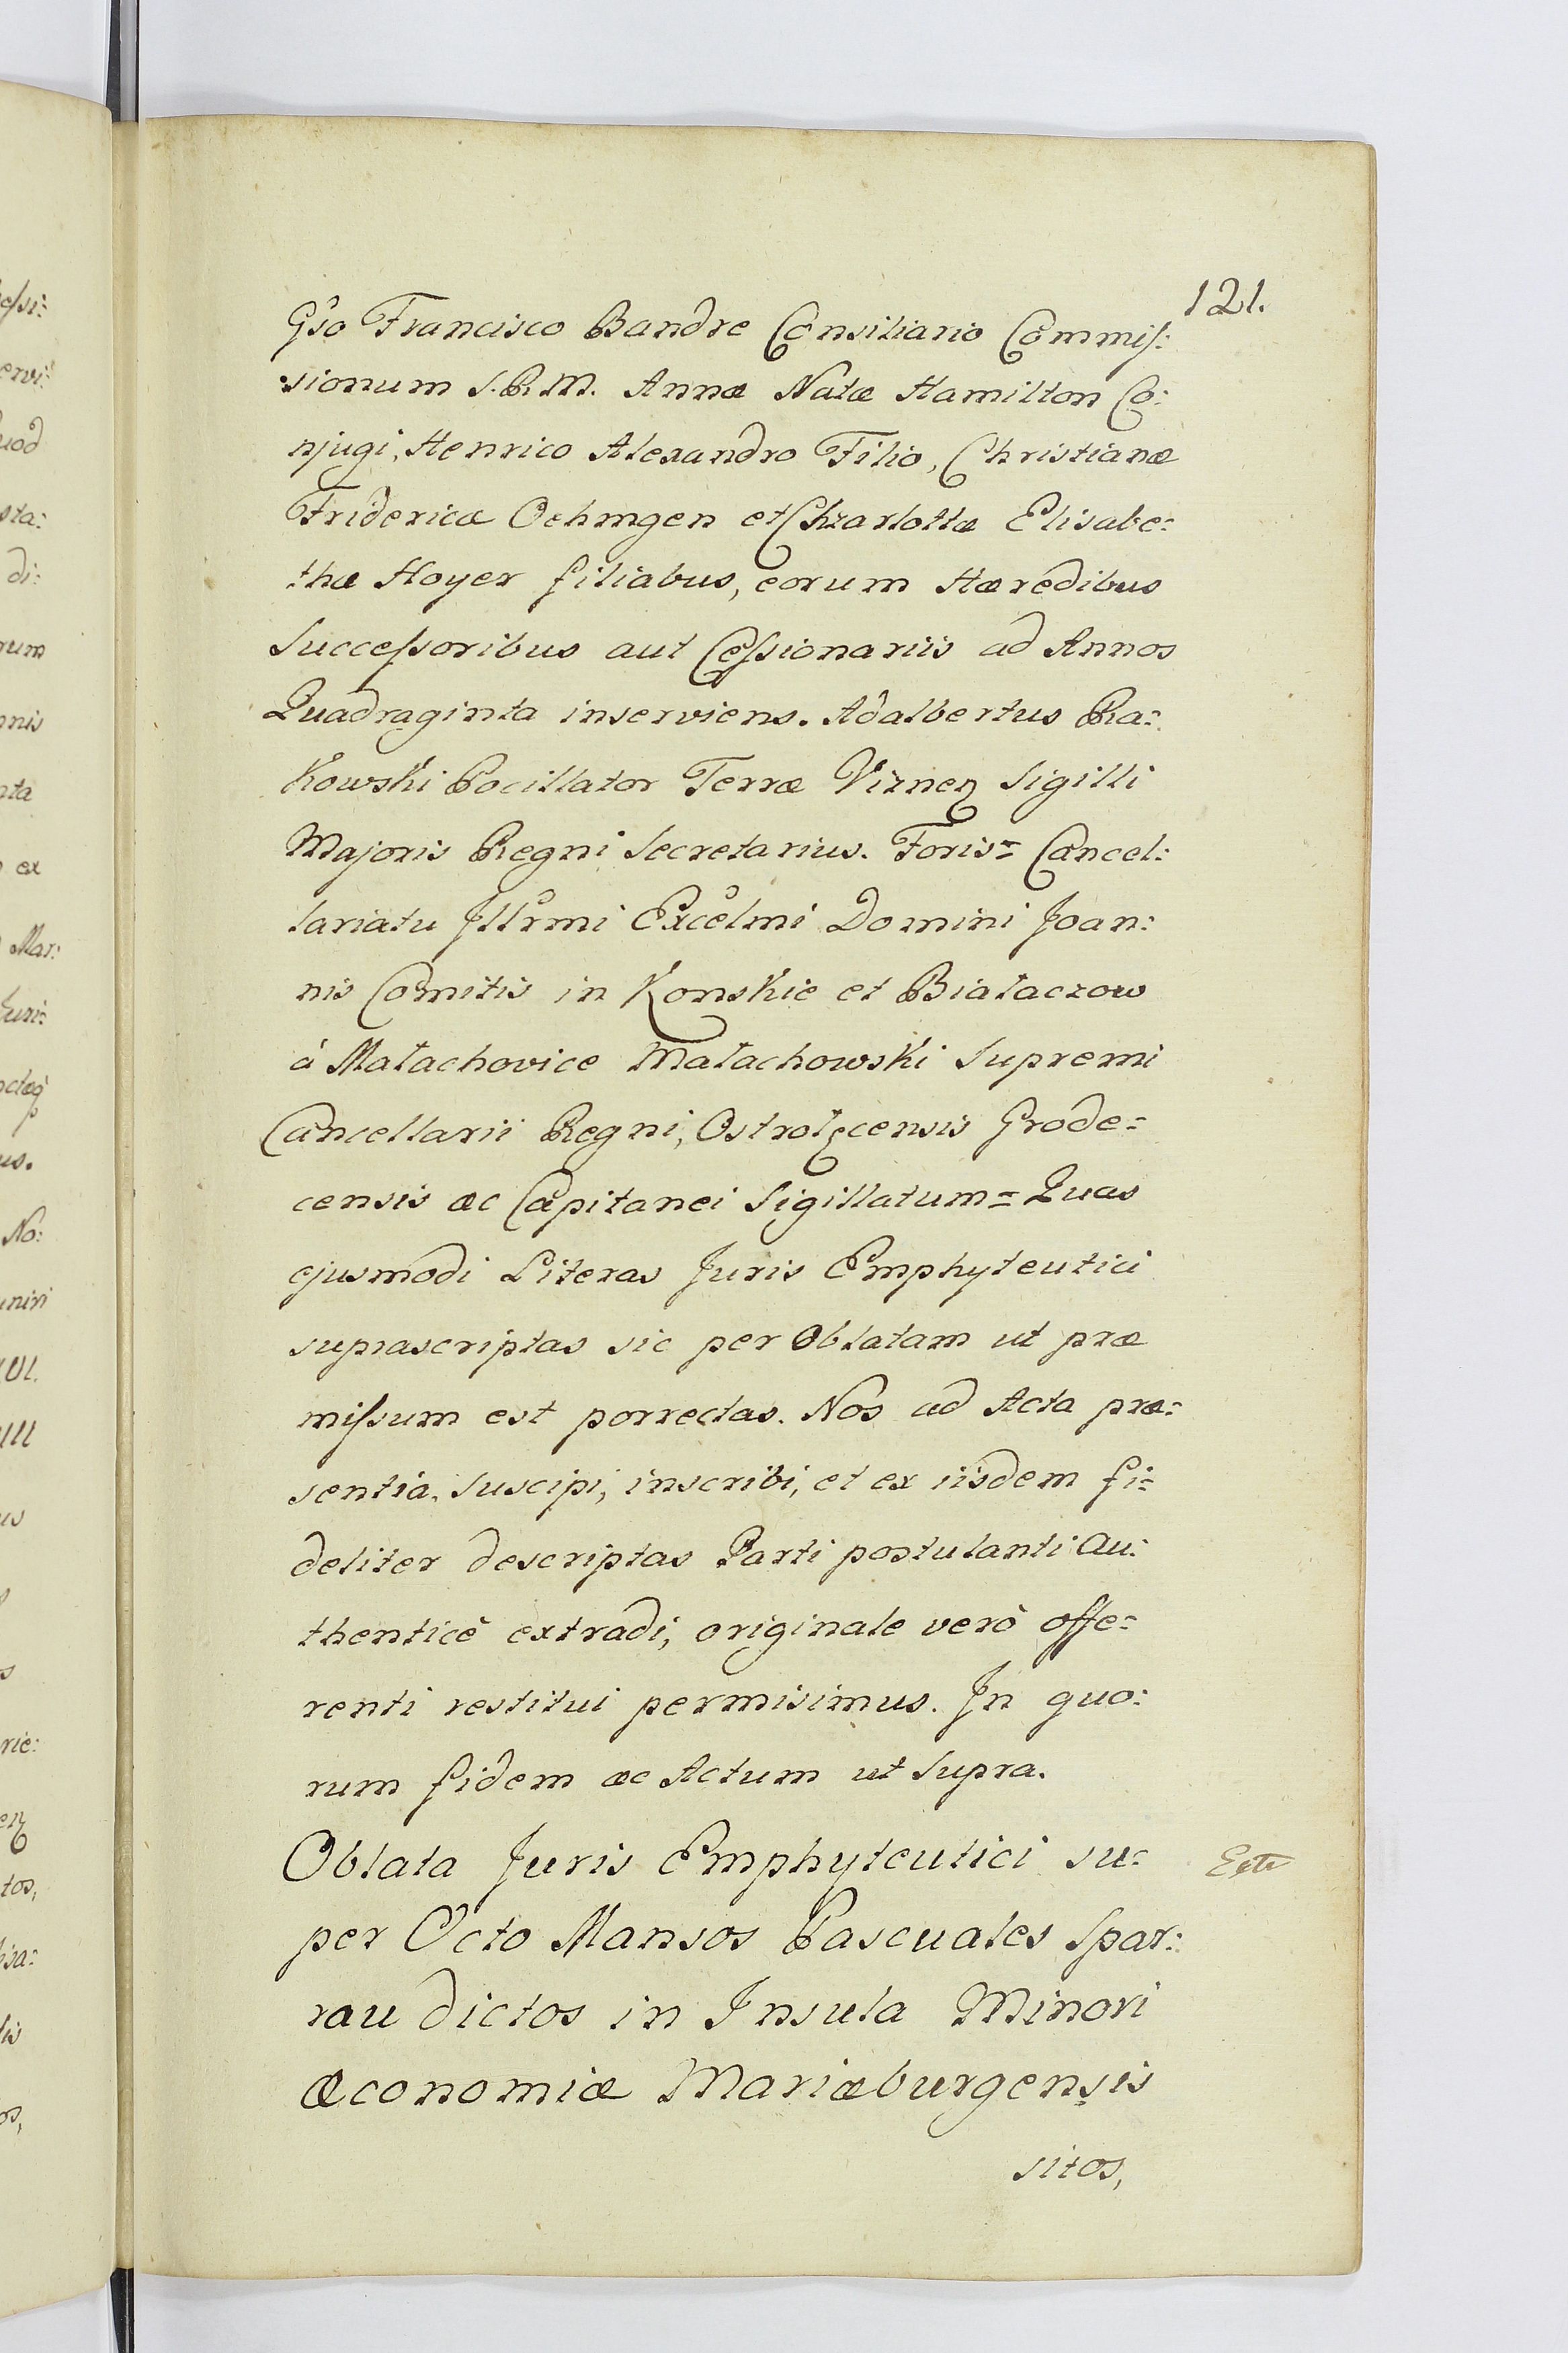 121.
Gso Francisco Bandre Consiliario Commis:
sionum S.R.M. Annæ Natæ Hamilton Co:
njugi, Henrico Alexandro Filio, Christianæ
Fridericæ Oehmgen et Charlottæ Elisabe=
thæ Hoyer filiabus, eorum Hæredibus
Successoribus aut Cessionariis ad Annos
Quadraginta inserviens. Adalbertus Ra=
Kowski Pocillator Terræ Viznen Sigilli
Majoris Regni Secretarius. Foris= Cancel:
lariatu Jllrmi Excelmi Domini Joan:
nis Comitis in Konskie et Białaczow
à Małachovice Małachowski Supremi
Cancellarii Regni, Ostrołęcensis Grode=
censis ac Capitanei Sigillatum= Quas
ejusmodi Literas Juris Emphyteutici
suprascriptas sic per Oblatam ut præ
missum est porrectas. Nos ad Acta præ=
sentia, suscipi, inscribi, et ex iisdem fi=
deliter descriptas Parti postulanti Au:
thenticè extradi, originale verò offe=
renti restitui permisimus. Jn quo:
rum fidem ac Actum ut Supra.
Oblata Juris Emphyteutici su=
per Octo Mansos Pascuales Spar=
rau dictos in Insula Minori
Œconomiæ Mariæburgensis
sitos,